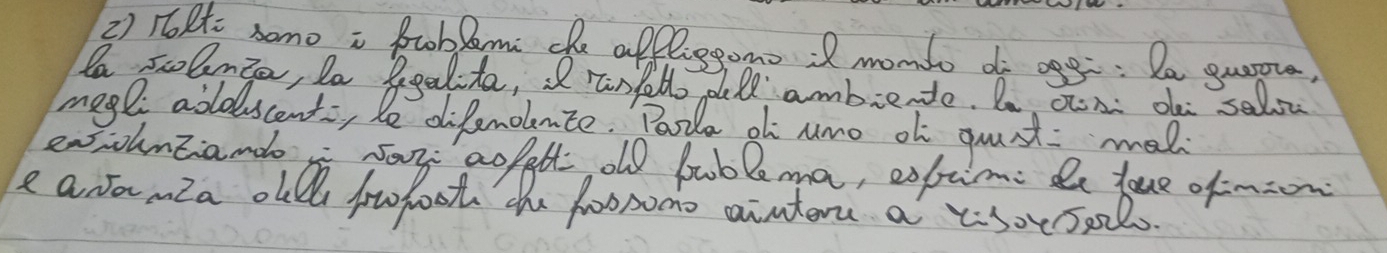 2) Molti sono i problemi che affliggono il mondo di oggi: la guerra,
la violenza, la legalità, il rispetto dell'ambiente. la crisi dei valori
negli adolescenti, le dipendenze. Parla di uno di questi mali
evidenziando i vari aspetti del problema, esprimi le tue opinioni
e avanza delle proposte che possono aiutare a risolverlo.